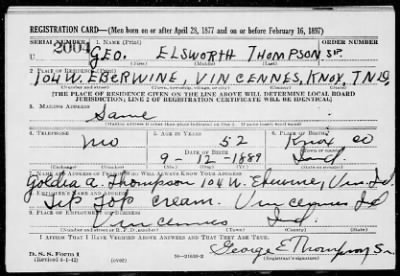 REGISTRATION CARD—(Men born on or after April 28, 1877 and on or before February 16, 1897)
SERIAL NUMBER 1. NAME (Print) ORDER NUMBER
U 2004 GEO. ELSWORTH THOMPSON SR.
2. PLACE OF RESIDENCE (Print)
104 W. EBERWINE, VINCENNES, KNOX, IND.
[THE PLACE OF RESIDENCE GIVEN ON THE LINE ABOVE WILL DETERMINE LOCAL BOARD
JURISDICTION; LINE 2 OF REGISTRATION CERTIFICATE WILL BE IDENTICAL]
3. MAILING ADDRESS
Same
4. TELEPHONE 5. AGE IN YEARS 6. PLACE OF BIRTH
no 52 Knox co
DATE OF BIRTH
9-12-1889 Ind
Goldia A. Thompson 104 W. Eberwine, Vin Id
8. EMPLOYER'S NAME AND ADDRESS
Tip Top Cream. Vincennes Id
9. PLACE OF EMPLOYMENT OR BUSINESS
Vincennes Ind.
I AFFIRM THAT I HAVE VERIFIED ABOVE ANSWERS AND THAT THEY ARE TRUE.
D. S. S. Form 1 George E Thompson Sr
(Revised 4-1-42) (over) 16—21630-2